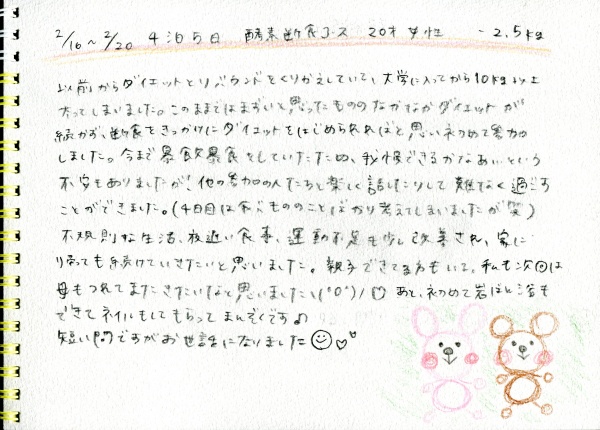 2/16〜2/20 4泊5日 酵素断食コース 20才 女性 -2.5kg
以前からダイエットとリバウンドをくりかえしていて、大学に入ってから10kg以上
太ってしまいました。このままではまずいと思ったもののなかなかダイエットが
続かず、断食をきっかけにダイエットをはじめられればと思い初めて参加
しました。今まで暴飲暴食をしていたため、我慢できるかなぁ…という
不安もありましたが、他の参加の人たちと楽しく話したりして難なく過ごす
ことができました。(4日目は食べもののことばかり考えてしまいましたが笑)
不規則な生活、夜遅い食事、運動不足も少し改善され、家に
帰っても続けていきたいと思いました。親子できてる方もいて、私も次回は
母もつれてまたきたいなと思いました\(^0^)/♡ あと、初めて岩ばん浴も
できてネイルもしてもらってまんぞくです♪
短い間ですがお世話になりました